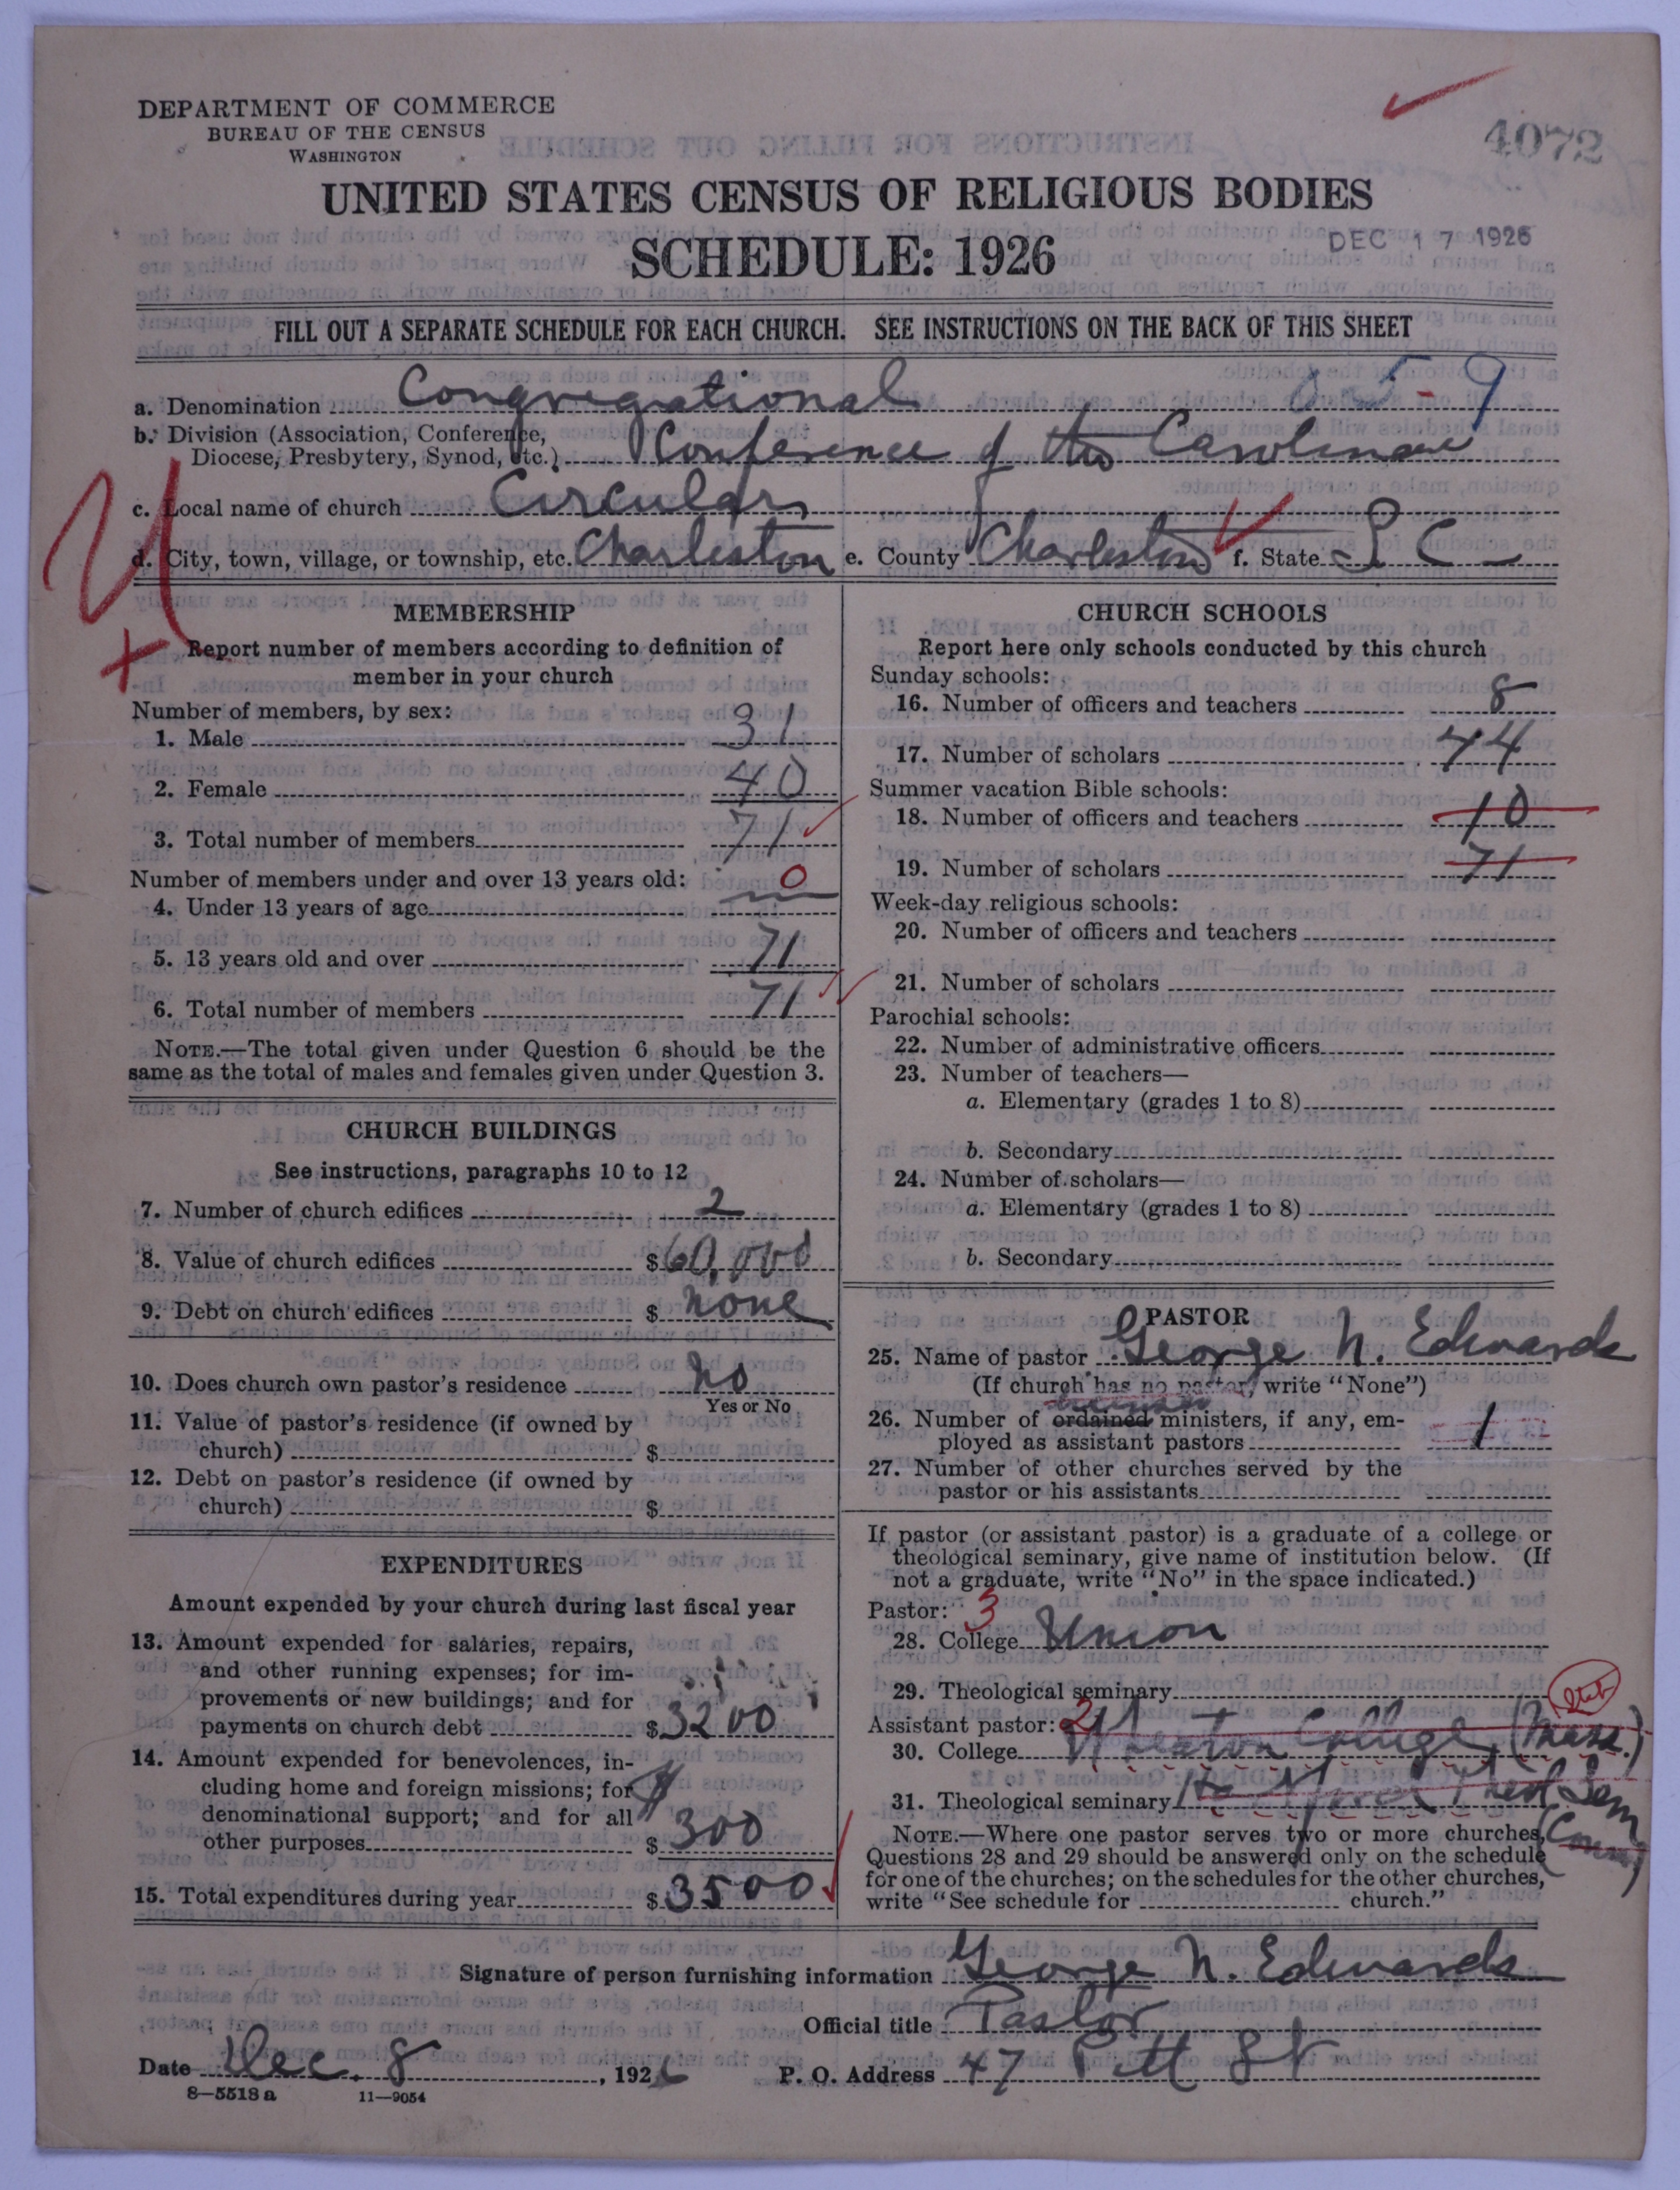 DEPARTMENT OF COMMERCE
BUREAU OF THE CENSUS
WASHINGTON
4072
UNITED STATES CENSUS OF RELIGIOUS BODIES
SCHEDULE: 1926
DEC 17 1926
FILL OUT A SEPARATE SCHEDULE FOR EACH CHURCH. SEE INSTRUCTIONS ON THE BACK OF THIS SHEET
a. Denomination Congregational - 9
b. Division (Association, Conference,
Diocese, Presbytery, Synod, etc.) Conference of the Carolinas
c. Local name of church Circular
d. City, town, village, or township, etc. Charleston e. County Charleston f. State S C
MEMBERSHIP
Report number of members according to definition of
member in your church
Number of members, by sex:
1. Male 31
2. Female 40
3. Total number of members 71
Number of members under and over 13 years old:
4. Under 13 years of age 0
5. 13 years old and over 71
6. Total number of members 71
NOTE.—The total given under Question 6 should be the
same as the total of males and females given under Question 3.
CHURCH BUILDINGS
See instructions, paragraphs 10 to 12
7. Number of church edifices 2
8. Value of church edifices $60,000
9. Debt on church edifices $ none
10. Does church own pastor's residence no
Yes or No
11. Value of pastor's residence (if owned by
church) $
12. Debt on pastor's residence (if owned by
church) $
EXPENDITURES
Amount expended by your church during last fiscal year
13. Amount expended for salaries, repairs,
and other running expenses; for im-
provements or new buildings; and for
payments on church debt $3200
14. Amount expended for benevolences, in-
cluding home and foreign missions; for
denominational support; and for all
other purposes $300
15. Total expenditures during year $3500
CHURCH SCHOOLS
Report here only schools conducted by this church
Sunday schools:
16. Number of officers and teachers 8
17. Number of scholars 44
Summer vacation Bible schools:
18. Number of officers and teachers 10
19. Number of scholars 71
Week-day religious schools:
20. Number of officers and teachers
21. Number of scholars
Parochial schools:
22. Number of administrative officers
23. Number of teachers—
a. Elementary (grades 1 to 8)
b. Secondary
24. Number of scholars—
a. Elementary (grades 1 to 8)
b. Secondary
PASTOR
25. Name of pastor George N. Edwards
(If church has no pastor, write "None")
26. Number of ordained ministers, if any, em-
ployed as assistant pastors 1
27. Number of other churches served by the
pastor or his assistants
If pastor (or assistant pastor) is a graduate of a college or
theological seminary, give name of institution below. (If
not a graduate, write "No" in the space indicated.)
Pastor: 3
28. College Union
29. Theological seminary
Assistant pastor: 2
30. College Wheaton College (Mass.)
31. Theological seminary Hartford Theol Sem
(Conn)
NOTE.—Where one pastor serves two or more churches,
Questions 28 and 29 should be answered only on the schedule
for one of the churches; on the schedules for the other churches,
write "See schedule for church."
Signature of person furnishing information George N. Edwards
Official title Pastor
Date Dec. 8, 1926 P. O. Address 47 Pitt St
8—5518 a 11—9054